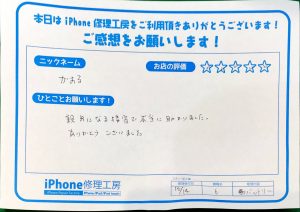 本日は iPhone 修理工房をご利用頂きありがとうございます！
ご感想をお願いします！
ニックネーム
かおる
お店の評価
☆☆☆☆☆
ひとことお願いします！
親身になる接客で本当に助かりました。
ありがとうございました
iPhone修理工房